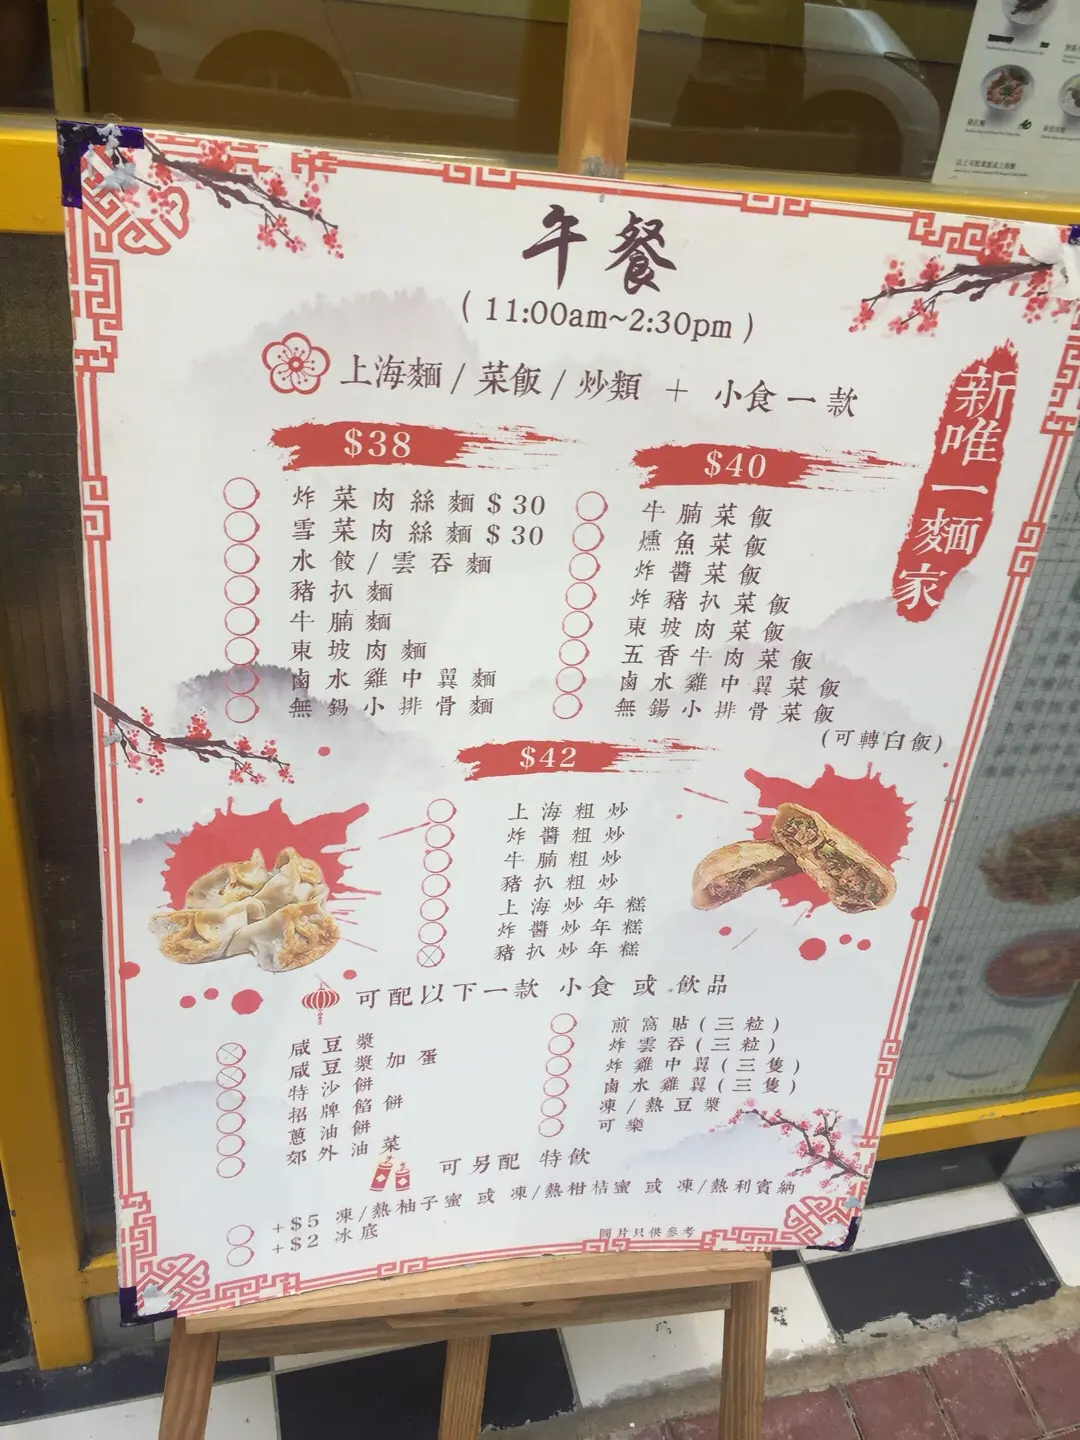 午餐
( 11:00am~2:30pm )
上海麵 / 菜飯 / 炒類 + 小食一款
新唯一麵家
$38
炸菜肉絲麵 $30
雪菜肉絲麵 $30
水餃 / 雲吞麵
豬扒麵
牛腩麵
東坡肉麵
鹵水雞中翼麵
無錫小排骨麵
$40
牛腩菜飯
燻魚菜飯
炸醬菜飯
炸豬扒菜飯
東坡肉菜飯
五香牛肉菜飯
鹵水雞中翼菜飯
無錫小排骨菜飯
(可轉白飯)
$42
上海粗炒
炸醬粗炒
牛腩粗炒
豬扒粗炒
上海炒年糕
炸醬炒年糕
豬扒炒年糕
可配以下一款 小食 或 飲品
咸豆漿
咸豆漿加蛋
特沙餅
招牌餡餅
蔥油餅
郊外油菜
煎窩貼(三粒)
炸雲吞(三粒)
炸雞中翼(三隻)
鹵水雞翼(三隻)
凍/熱豆漿
可樂
可另配 特飲
+$5 凍/熱柚子蜜 或 凍/熱柑桔蜜 或 凍/熱利賓納
+$2 冰底
圖片只供參考